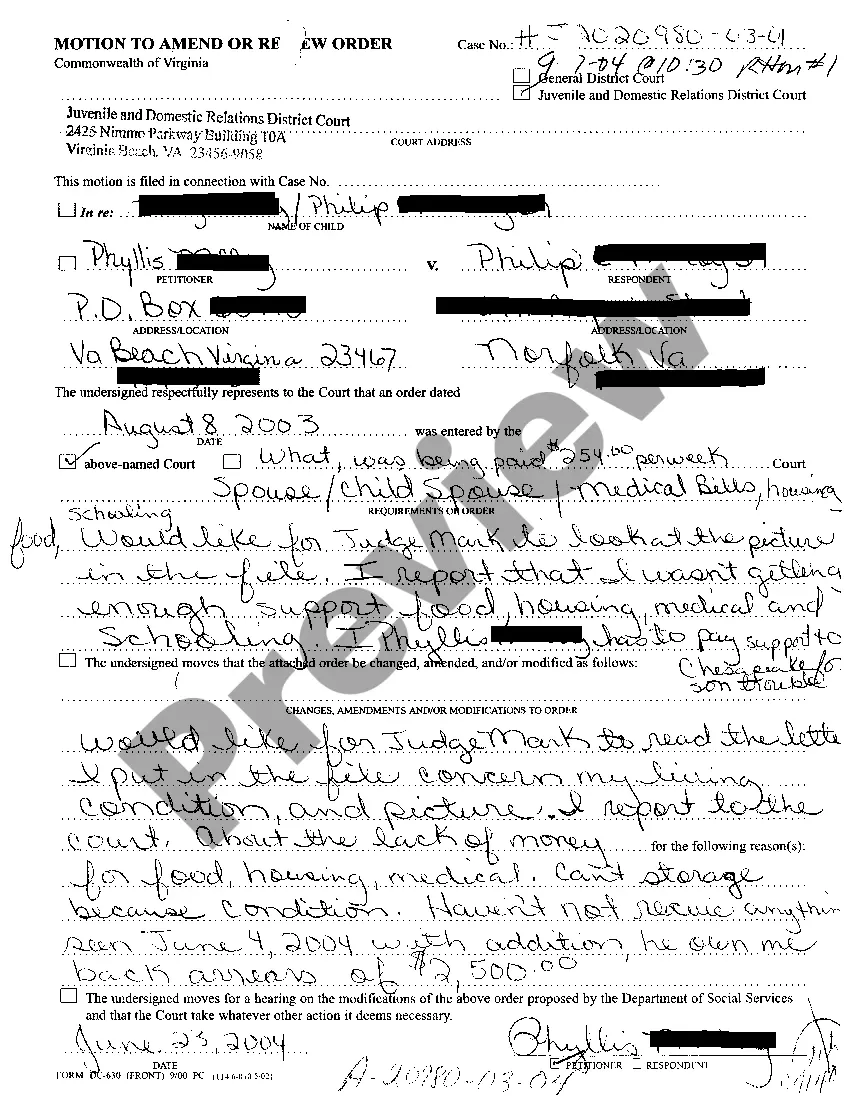 MOTION TO AMEND OR RE EW ORDER
Case No.: # J 2020980-03-01
Commonwealth of Virginia
9-7-04 @10:30 #1
General District Court
Juvenile and Domestic Relations District Court
Juvenile and Domestic Relations District Court
2425 Nimmo Parkway Building 10A
Virginia Beach, VA 23456-9058
COURT ADDRESS
This motion is filed in connection with Case No.
In re: / Philip
NAME OF CHILD
Phyllis v. Philip
PETITIONER RESPONDENT
P.O. Box
ADDRESS/LOCATION ADDRESS/LOCATION
Va Beach Virginia 23467 Norfolk Va
The undersigned respectfully represents to the Court that an order dated
August 8 2003 was entered by the
DATE
above-named Court What, was being paid $254.00 per week Court
Spouse/Child Spouse/medical Bells, housing
Schooling REQUIREMENTS OF ORDER
food, Would like for Judge Mark to look at the picture
in the file. I report that I wasn't getting
enough support food, housing, medical and
Schooling. I Phyllis has to pay support to
Chesapeake for
son trouble
The undersigned moves that the attached order be changed, amended, and/or modified as follows:
CHANGES, AMENDMENTS AND/OR MODIFICATIONS TO ORDER
would like for Judge Mark to read the lette
I put in the file concern my living
condition, and picture. I report to the
court. About the lack of money for the following reason(s):
for food, housing, medical. Can't storage
because condition. Haven't not recive anythin
seen June 4, 2004 with addition, he own me
back arrears of $2,500.00
The undersigned moves for a hearing on the modifications of the above order proposed by the Department of Social Services
and that the Court take whatever other action it deems necessary.
June 23, 2004 Phyllis
DATE PETITIONER RESPONDENT
FORM DC-630 (FRONT) 9/00 PC
A-20980-03-04
Preview